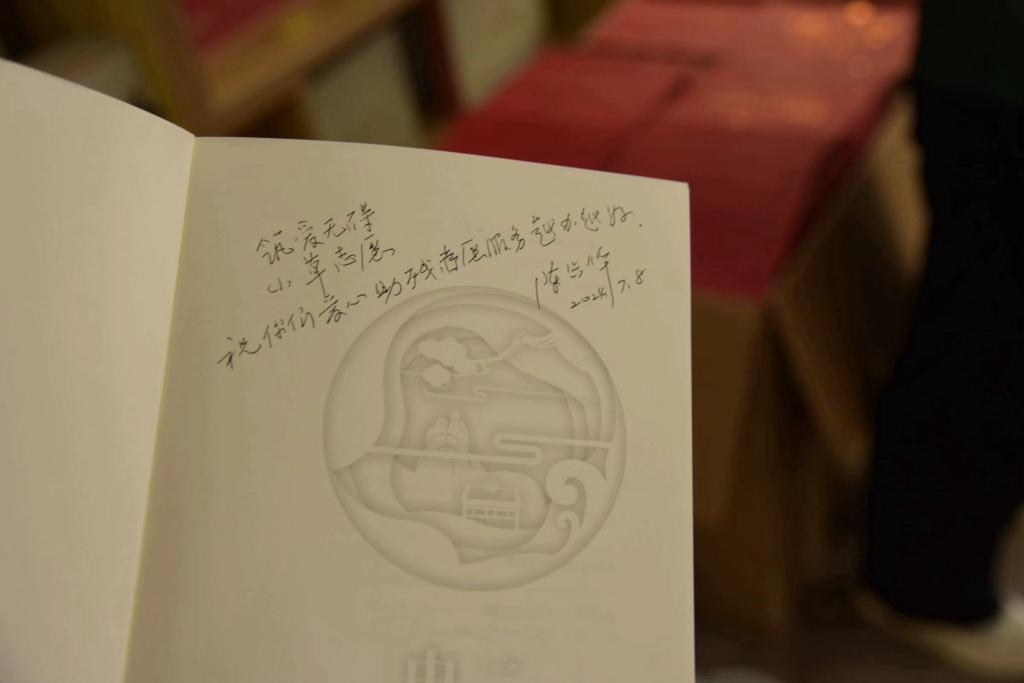 筑爱无碍
小草志愿
祝你们爱心助残志愿服务越办越好.
2024.7.8